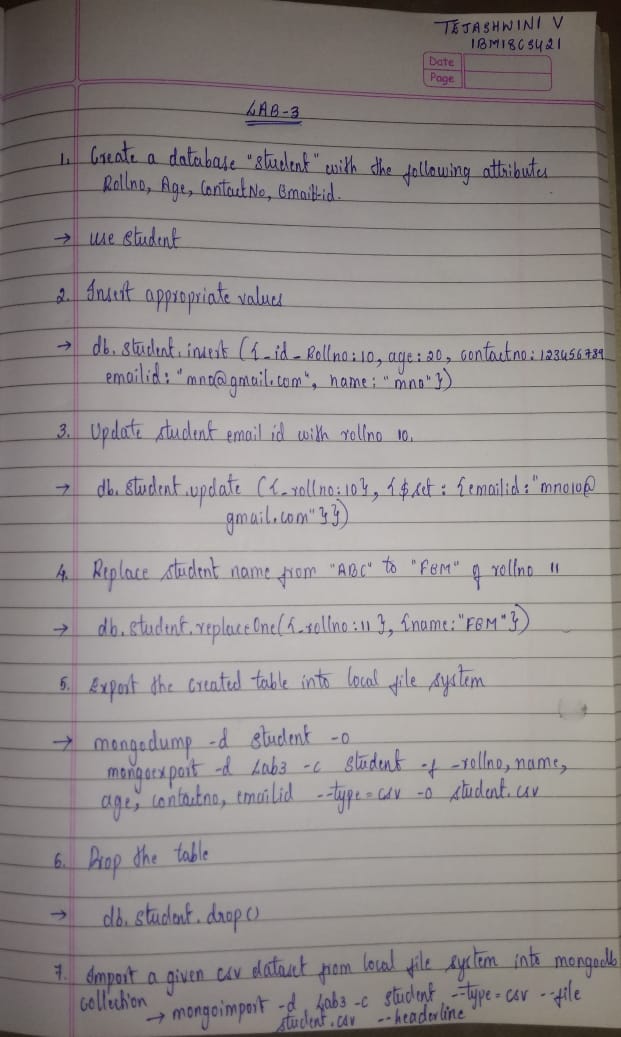 TEJASHWINI V
1BM18CS421
Date
Page
LAB-3
1. Create a database "student" with the following attributes
Rollno, Age, ContactNo, Email-id.
→ use student
2. Insert appropriate values
→ db.student.insert ({_id_Rollno:10, age:20, contactno:123456789
emailid:"mno@gmail.com", name:"mno"})
3. Update student email id with rollno 10.
→ db.student.update ({_rollno:10}, {$set : {emailid:"mno10@
gmail.com"}})
4. Replace student name from "ABC" to "FEM" of rollno 11
→ db.student.replaceOne({_rollno:11}, {name:"FEM"})
5. Export the created table into local file system
→ mongodump -d student -o
mongoexport -d Lab3 -c student -f -rollno, name,
age, contactno, emailid --type=csv -o student.csv
6. Drop the table
→ db.student.drop()
7. Import a given csv dataset from local file system into mongodb
collection
→ mongoimport -d Lab3 -c student --type=csv --file
student.csv --headerline